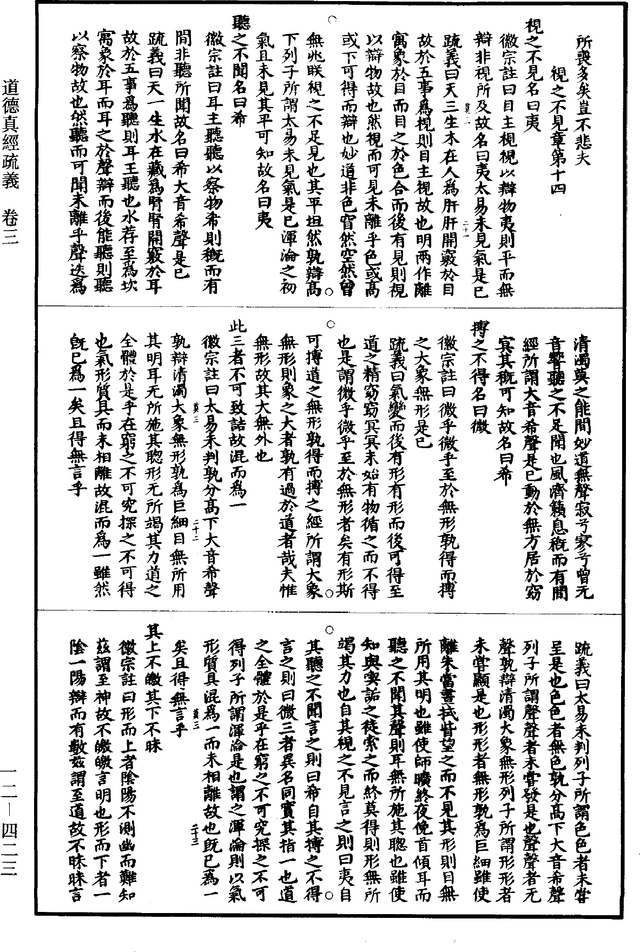 所喪多矣豈不悲夫
視之不見章第十四
視之不見名曰夷
徽宗註曰目主視視以辯物夷則平而無
辯非視所及故名曰夷太易未見氣是已
疏義曰天三生木在人為肝肝開竅於目
故於五事為視則目主視故也明兩作離
寓象於目而目之於色合而後有見則視
以辯物故也然視而可見未離乎色或高
或下可得而辯也妙道非色窅然空然曾
無兆眹視之不足見也其平坦然孰辯高
下列子所謂太易未見氣是已渾淪之初
氣且未見其平可知故名曰夷
聽之不聞名曰希
徽宗註曰耳主聽聽以察物希則概而有
間非聽所聞故名曰希大音希聲是已
疏義曰天一生水在藏為腎腎開竅於耳
故於五事為聽則耳主聽也水荐至為坎
寓象於耳而耳之於聲辯而後能聽則聽
以察物故也然聽而可聞未離乎聲迭為
清濁與之能間妙道無聲寂兮寥兮曾无
音響聽之不足聞也風濟籟息概而有間
經所謂大音希聲是已動於無方居於窈
冥其概可知故名曰希
搏之不得名曰微
徽宗註曰微乎微乎至於無形孰得而搏
之大象無形是已
疏義曰氣變而後有形有形而後可得至
道之精窈窈冥冥未始有物循之而不得
也是謂微乎微乎至於無形者矣有形斯
可搏道之無形孰得而搏之經所謂大象
無形則象之大者孰有過於道者哉夫惟
無形故其大無外也
此三者不可致詰故混而為一
徽宗註曰太易未判孰分高下大音希聲
孰辯清濁大象無形孰為巨細目無所用
其明耳无所施其聰形无所竭其力道之
全體於是乎在窮之不可究探之不可得
也氣形質具而未相離故混而為一雖然
既已為一矣且得無言乎
疏義曰太易未判列子所謂色色者未嘗
呈是也色色者無色孰分高下大音希聲
列子所謂聲聲者未嘗發是也聲聲者无
聲孰辯清濁大象無形列子所謂形形者
未嘗顯是也形形者無形孰為巨細雖使
離朱當晝拭眥望之而不見其形則目無
所用其明也雖使師曠終夜俛首傾耳而
聽之不聞其聲則耳無所施其聰也雖使
知與喫詬之徒索之而終莫得則形無所
竭其力也自其視之不見言之則曰夷自
其聽之不聞言之則曰希自其搏之不得
言之則曰微三者異名同實其指一也道
之全體於是乎在窮之不可究探之不可
得列子所謂渾淪是也謂之渾淪則以氣
形質具混為一而未相離故也既已為一
矣且得無言乎
其上不皦其下不昧
徽宗註曰形而上者陰陽不測幽而難知
茲謂至神故不皦皦言明也形而下者一
陰一陽辯而有數茲謂至道故不昧昧言
道德真經疏義　卷三
一二—四二三